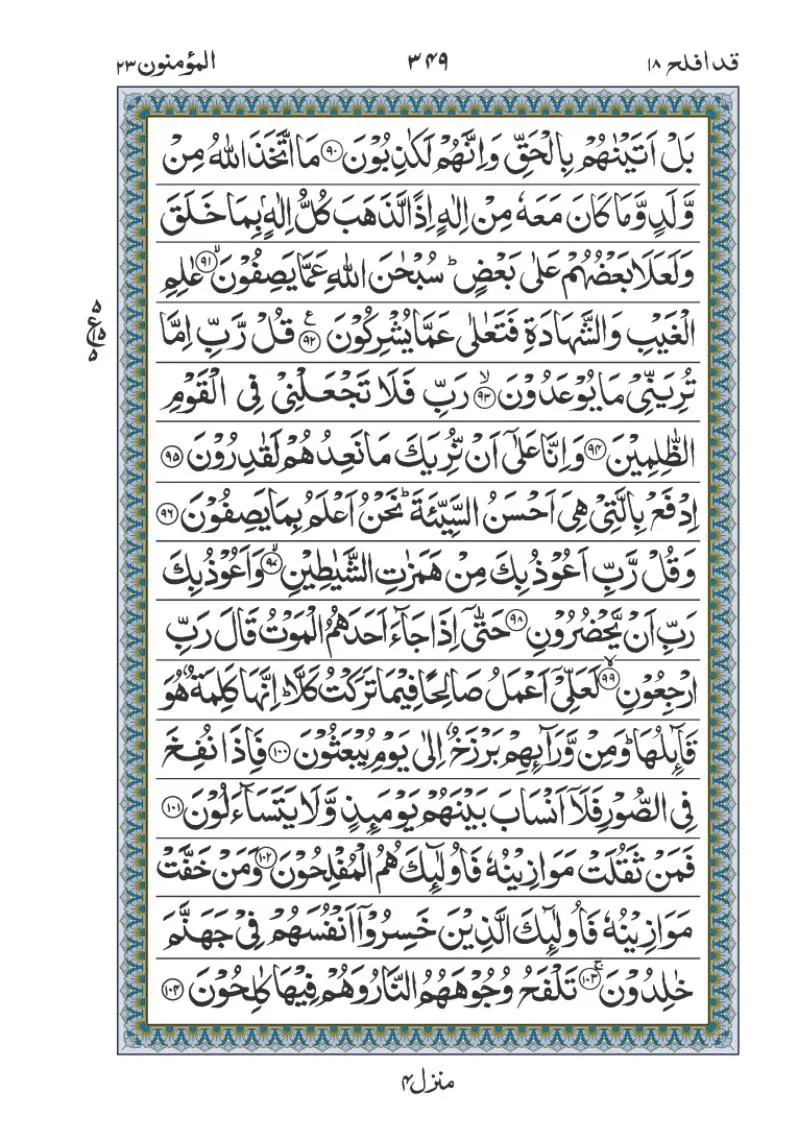 قد افلح ۱۸ ۳۴۹ المؤمنون ۲۳
بَلْ اَتَيْنٰهُمْ بِالْحَقِّ وَاِنَّهُمْ لَكٰذِبُوْنَ ۹۰ مَا اتَّخَذَ اللّٰهُ مِنْ
وَّلَدٍ وَّمَا كَانَ مَعَهٗ مِنْ اِلٰهٍ اِذًا لَّذَهَبَ كُلُّ اِلٰهٍۭ بِمَا خَلَقَ
وَلَعَلَا بَعْضُهُمْ عَلٰى بَعْضٍ ؕ سُبْحٰنَ اللّٰهِ عَمَّا يَصِفُوْنَ ۙ ۹۱ عٰلِمِ
الْغَيْبِ وَالشَّهَادَةِ فَتَعٰلٰى عَمَّا يُشْرِكُوْنَ ۹۲ ع قُلْ رَّبِّ اِمَّا
تُرِيَنِّيْ مَا يُوْعَدُوْنَ ۙ ۹۳ رَبِّ فَلَا تَجْعَلْنِيْ فِي الْقَوْمِ
الظّٰلِمِيْنَ ۹۴ وَاِنَّا عَلٰٓى اَنْ نُّرِيَكَ مَا نَعِدُهُمْ لَقٰدِرُوْنَ ۹۵
اِدْفَعْ بِالَّتِيْ هِيَ اَحْسَنُ السَّيِّئَةَ ؕ نَحْنُ اَعْلَمُ بِمَا يَصِفُوْنَ ۹۶
وَقُلْ رَّبِّ اَعُوْذُ بِكَ مِنْ هَمَزٰتِ الشَّيٰطِيْنِ ۙ ۹۷ وَاَعُوْذُ بِكَ
رَبِّ اَنْ يَّحْضُرُوْنِ ۹۸ حَتّٰٓى اِذَا جَآءَ اَحَدَهُمُ الْمَوْتُ قَالَ رَبِّ
ارْجِعُوْنِ ۙ ۹۹ لَعَلِّيْٓ اَعْمَلُ صَالِحًا فِيْمَا تَرَكْتُ كَلَّا ؕ اِنَّهَا كَلِمَةٌ هُوَ
قَآئِلُهَا ؕ وَمِنْ وَّرَآئِهِمْ بَرْزَخٌ اِلٰى يَوْمِ يُبْعَثُوْنَ ۱۰۰ فَاِذَا نُفِخَ
فِي الصُّوْرِ فَلَآ اَنْسَابَ بَيْنَهُمْ يَوْمَئِذٍ وَّلَا يَتَسَآءَلُوْنَ ۱۰۱
فَمَنْ ثَقُلَتْ مَوَازِيْنُهٗ فَاُولٰٓئِكَ هُمُ الْمُفْلِحُوْنَ ۱۰۲ وَمَنْ خَفَّتْ
مَوَازِيْنُهٗ فَاُولٰٓئِكَ الَّذِيْنَ خَسِرُوْٓا اَنْفُسَهُمْ فِيْ جَهَنَّمَ
خٰلِدُوْنَ ۚ ۱۰۳ تَلْفَحُ وُجُوْهَهُمُ النَّارُ وَهُمْ فِيْهَا كٰلِحُوْنَ ۱۰۴
منزل ۴